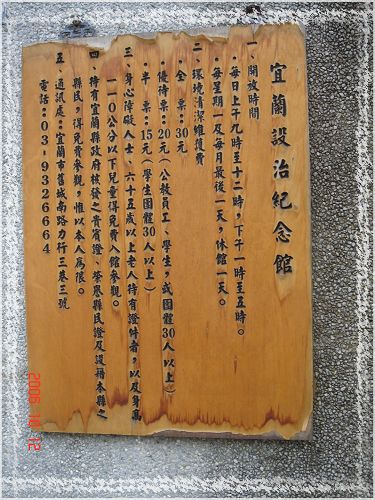 宜蘭設治紀念館
一、開放時間
•每日上午九時至十二時，下午一時至五時。
•每星期一及每月最後一天，休館一天。
二、環境清潔維護費
•全 票：30元
•優待票：20元（公教員工、學生，或團體30人以上）
•半 票：15元（學生團體30人以上）
三、身心障礙人士、六十五歲以上老人持有證件者，以及身高
一一0公分以下兒童得免費入館參觀。
四、持有宜蘭縣政府核發之貴賓證、榮譽縣民證及設籍本縣之
縣民，得免費參觀，惟以本人為限。
五、通訊處：宜蘭市舊城南路力行三巷三號
電話：03-9326664
2006 10 12